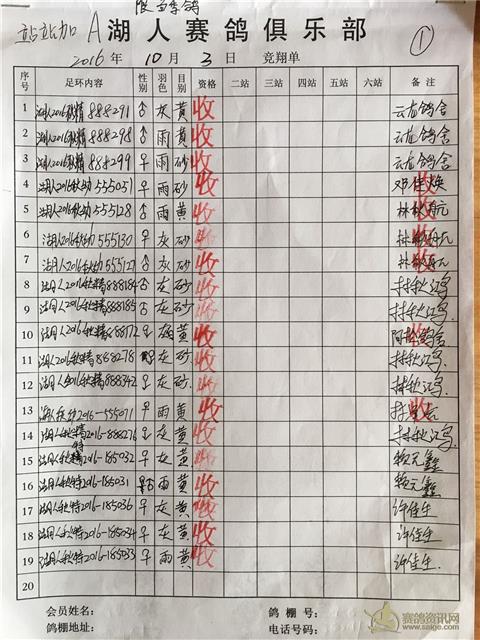 限当季鸽
站站加 A 湖人赛鸽俱乐部 ①
2016年 10月 3日 竞翔单
序号 足环内容 性别 羽色 目别 资格 二站 三站 四站 五站 六站 备注
1 湖人2016秋精888291 ♂ 灰 黄 收 云龙鸽舍
2 湖人2016秋精888298 ♂ 雨 黄 收 云龙鸽舍
3 湖人2016秋精888299 ♀ 雨 砂 收 云龙鸽舍
4 湖人2016秋幼555051 ♀ 雨 砂 收 邓佳焕 收
5 湖人2016秋幼555128 ♂ 雨 黄 收 收
6 湖人2016秋幼555130 ♀ 灰 砂 收 收
7 湖人2016秋幼555127 ♂ 灰 砂 收 收
8 湖人2016秋精888184 ♂ 灰 砂 收 林秋鸿
9 湖人2016秋精888185 ♂ 灰 砂 收 林秋鸿
10 湖人2016秋精888172 ♀ 黄 收 收
11 湖人2016秋精888278 灰 砂 收 林秋鸿
12 湖人2016秋精888342 ♀ 灰 砂 收 林秋鸿
13 2016-555071 ♀ 雨 黄 收 收
14 湖人秋精2016-888276 ♀ 灰 黄 收 林秋鸿
15 湖人秋特2016-185032 ♀ 灰 黄 收 鑫
16 湖人秋特2016-185031 雨 黄 收 鑫
17 湖人秋特2016-185036 ♀ 灰 黄 收 许佳生
18 湖人秋特2016-185034 ♀ 灰 黄 收 许佳生
19 湖人秋特2016-185033 ♀ 雨 黄 收 许佳生
20
会员姓名： 鸽棚号：
鸽棚地址： 电话号码：
赛鸽资讯网
www.saige.com